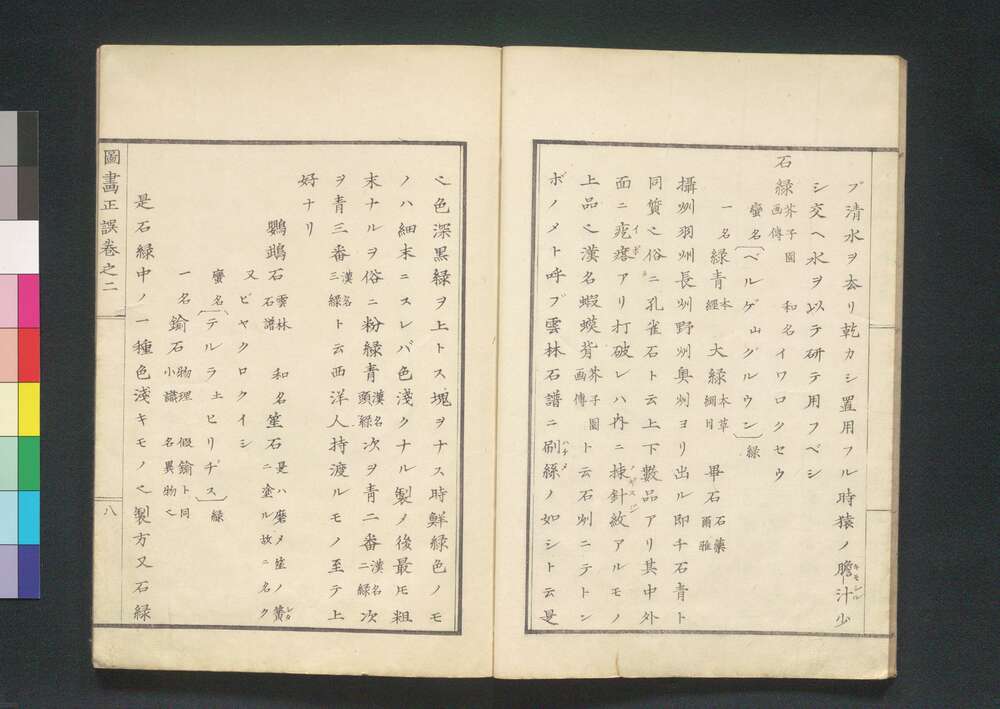 ブ清水ヲ去リ乾カシ置用フル時猿ノ膽汁少
キモシル
シ交ヘ水ヲ以テ研テ用フベシ
石緑 芥子園画傳 和名イワロクセウ
蠻名 ベルグ山グルウン緑
一名 緑青 本經 大緑 本草綱目 畢石 石藥爾雅
攝州羽州長州野州奥州ヨリ出ル即チ石青ト
同質ㇸ俗ニ孔雀石ト云上下數品アリ其中外
面ニ疙瘩アリ打破レハ内ニ棟針紋アルモノ
イボ
上品ㇸ漢名蝦蟆背 芥子園画傳 ト云石州ニテトン
ボノメト呼ブ雲林石譜ニ刷絲ノ如シト云是
ハケメ
ㇸ色深黒緑ヲ上トス塊ヲナス時鮮緑色ノモ
ノハ細末ニスレバ色淺クナル製ノ後最モ粗
末ナルヲ俗ニ粉緑青 漢名頭緑 次ヲ青二番 漢名二緑 次
ヲ青三番 漢名三緑 ト云西洋人持渡ルモノ至テ上
好ナリ
鸚鵡石 雲林石譜 和名 笙石 是ハ磨メ笙ノ簧ニ塗ル故ニ名ク
又 ビヤクロクイシ
蠻名 テルラ土ヒリヂス緑
一名 鍮石 物理小識 假鍮ト同名異物ㇸ
是石緑中ノ一種色淺キモノㇸ製方又石緑
圖畵正誤卷之二
八